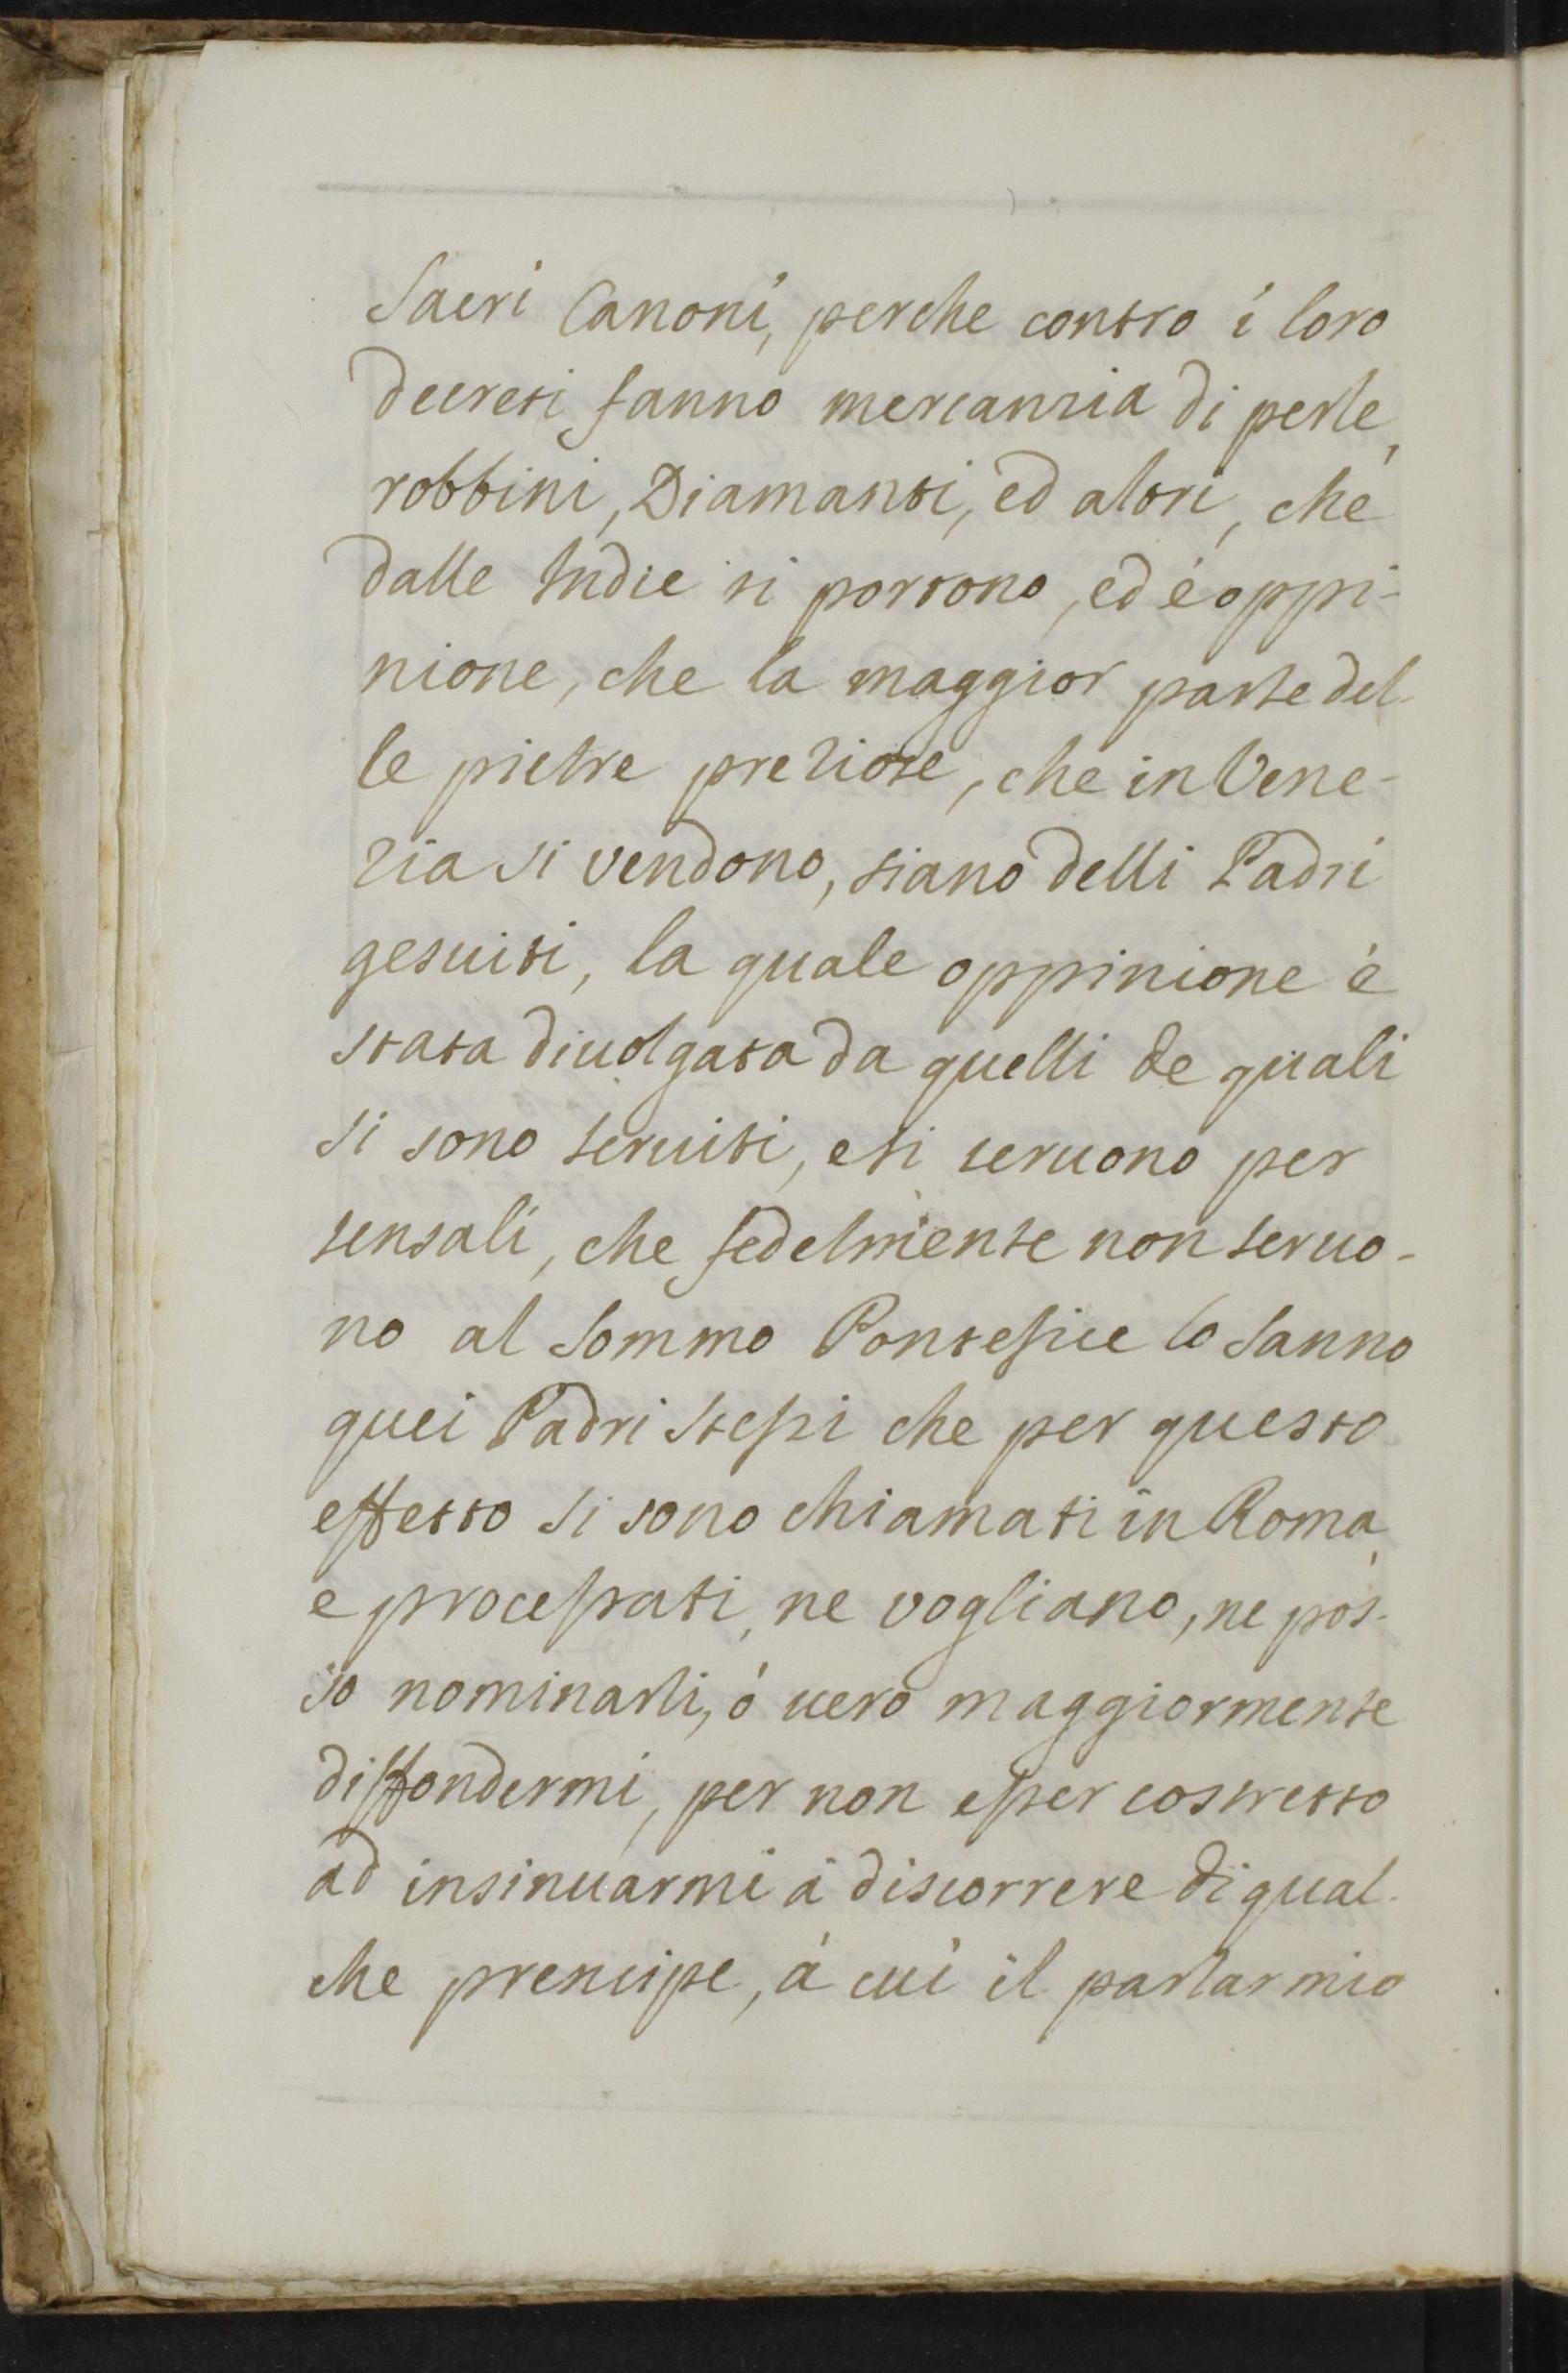 Sacri Canoni, perche contro i loro
decreti fanno mercanzia di perle,
robbini, Diamanti, ed altri, che
dalle Indie si portono, ed è oppi-
nione, che la maggior parte del-
le pietre preziose, che in Vene-
zia si vendono, siano delli Padri
gesuiti, la quale oppinione è
stata diuolgata da quelli de quali
si sono seruiti, e si seruono per
sensali, che fedelmente non seruo-
no al Sommo Pontefice lo sanno
quei Padri stessi che per questo
effetto si sono chiamati in Roma,
e processati, ne vogliano, ne pos-
so nominarli, ó uero maggiormente
diffondermi, per non esser costretto
ad insinuarmi á discorrere di qual-
che prencipe, á cui il parlar mio